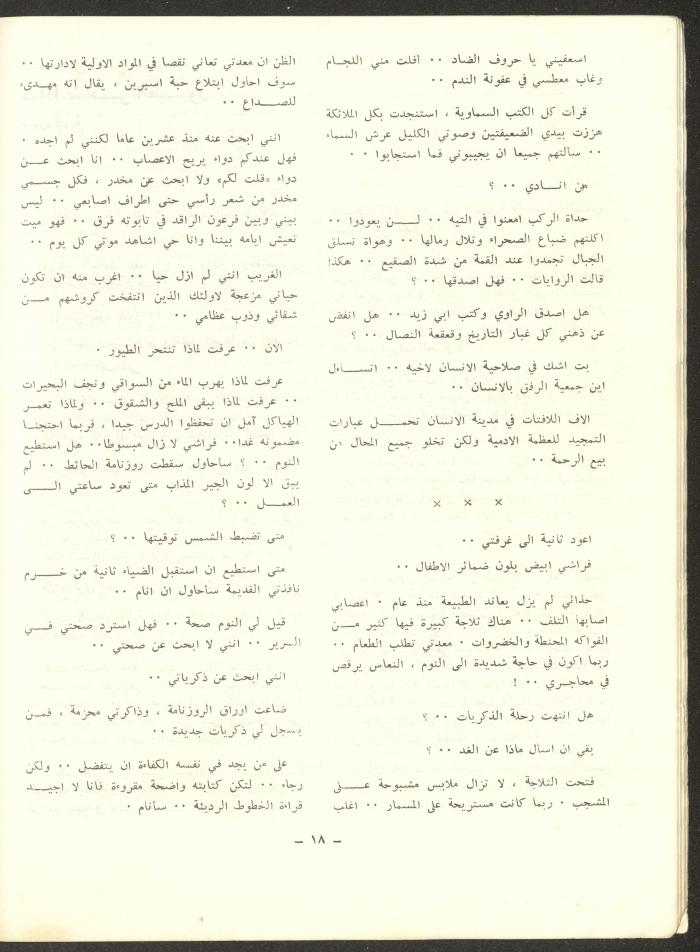 اسعفيني يا حروف الضاد ٠٠ أفلت مني اللجـام
وغاب معطسي في عفونة الندم ٠٠
قرأت كل الكتب السماوية ، استنجدت بكل الملائكة
هززت بيدي الضعيفتين وصوتي الكليل عرش السماء
٠٠ سألتهم جميعا ان يجيبوني فما استجابوا ٠٠
من انـــادي ٠٠ ؟
حداة الركب امعنوا في التيه ٠٠ لـــن يعودوا ٠٠
اكلتهم ضباع الصحراء وتلال رمالها ٠٠ وهواة تسلق
الجبال تجمدوا عند القمة من شدة الصقيع ٠٠ هكذا
قالت الروايات ٠٠ فهل اصدقها ٠٠ ؟
هل اصدق الراوي وكتب ابي زيد ٠٠ هل انفض
عن ذهني كل غبار التاريخ وقعقعة النصال ٠٠ ؟
بت اشك في صلاحية الانسان لاخيه ٠٠ اتســاءل
اين جمعية الرفق بالانسان ٠٠
الاف اللافتات في مدينة الانسان تحمـــل عبارات
التمجيد للعظمة الادمية ولكن تخلو جميع المحال من
بيع الرحمة ٠٠
× × ×
اعود ثانية الى غرفتي ٠٠
فراشي ابيض بلون ضمائر الاطفال ٠٠
حذائي لم يزل يعاند الطبيعة منذ عام ٠ اعصابي
اصابها التلف ٠٠ هناك ثلاجة كبيرة فيها كثير مـــن
الفواكه المحنطة والخضروات ٠ معدتي تطلب الطعام ٠٠
ربما اكون في حاجة شديدة الى النوم ، النعاس يرقص
في محاجـري ٠٠ !
هل انتهت رحلة الذكريات ٠٠ ؟
بقي ان اسال ماذا عن الغد ٠٠ ؟
فتحت الثلاجة ، لا تزال ملابس مشبوحة عـــلى
المشجب ٠ ربما كانت مستريحة على المسمار ٠٠ اغلب
الظن ان معدتي تعاني نقصا في المواد الاولية لادارتها ٠٠
سوف احاول ابتلاع حبة اسبرين ، يقال انه مهدىء
للصـــداع ٠٠
انني ابحث عنه منذ عشرين عاما لكنني لم اجده ٠
فهل عندكم دواء يريح الاعصاب ٠٠ انا ابحث عـــن
دواء «قلت لكم» ولا ابحث عن مخدر ، فكل جســمي
مخدر من شعر رأسي حتى اطراف اصابعي ٠٠ ليس
بيني وبين فرعون الراقد في تابوته فرق ٠٠ فهو ميت
تعيش ايامه بيننا وانا حي اشاهد موتي كل يوم ٠٠
الغريب انني لم ازل حيا ٠٠ اغرب منه ان تكون
حياتي مزعجة لاولئك الذين انتفخت كروشهم مـــن
شقائي وذوب عظامي ٠٠
الان ٠٠ عرفت لماذا تنتحر الطيور ٠
عرفت لماذا يهرب الماء من السواقي وتجف البحيرات
٠٠ عرفت لماذا يبقى الملح والشقوق ٠٠ ولماذا تعمـر
الهياكل آمل ان تحفظوا الدرس جيدا ، فربما احتجنـا
مضمونه غدا٠٠ فراشي لا زال مبسوطا٠٠ هل استطيع
النوم ٠٠ ؟ سأحاول سقطت روزنامة الحائط ٠٠ لم
يبق الا لون الجير المذاب متى تعود ساعتي الــــى
العمـــل ٠٠ ؟
متى تضبط الشمس توقيتها ٠٠ ؟
متى استطيع ان استقبل الضياء ثانية من خـــرم
نافذتي القديمة سأحاول ان انام ٠٠
قيل لي النوم صحة ٠٠ فهل استرد صحتي فـــي
السرير ٠٠ انني لا ابحث عن صحتي ٠٠
انني ابحث عن ذكرياتي ٠٠
ضاعت اوراق الروزنامة ، وذاكرتي محزمة ، فمـن
يسجل لي ذكريات جديدة ٠٠
على من يجد في نفسه الكفاءة ان يتفضل ٠٠ ولكن
رجاء ٠٠ لتكن كتابته واضحة مقروءة فانا لا اجيـــد
قراءة الخطوط الرديئة ٠٠ سأنام ٠
– ١٨ –